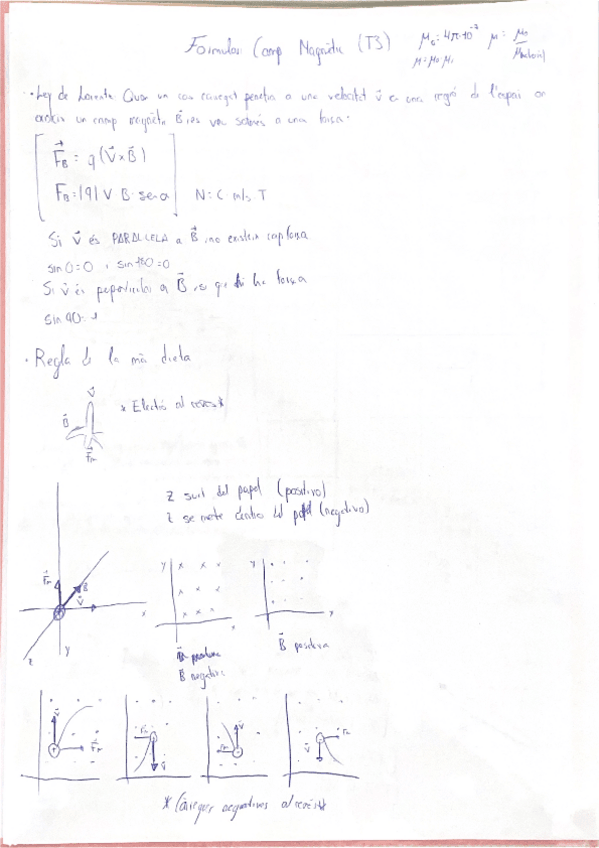 Formules Camp Magnètic (T3) μ₀ = 4π·10⁻⁷ μ = μ₀
μ = μ₀ μᵣ Material
· Ley de Lorentz: Quan un cos carregat penetra a una velocitat v⃗ a una regió de l'espai on
existeix un camp magnètic B⃗, es veu sotmès a una força.
F⃗_B = q (v⃗ x B⃗)
F_B = |q| V · B · sen α N = C m/s T
Si v⃗ és PARAL·LELA a B⃗, no existeix cap força
sin 0 = 0 , sin 180 = 0
Si v⃗ és perpendicular a B⃗, si que hi ha força
sin 90 = 1
· Regla de la mà dreta
v⃗
B⃗ * Electró al revés *
F⃗m
z surt del papel (positivo)
z se mete dentro del papel (negativo)
F⃗m B v⃗ x
z y
y x
y x
B⃗ negativa
B⃗ positiva
v⃗ F⃗m
Fm v⃗
Fm v⃗
v⃗ Fm
* Càrregues negatives al revés *